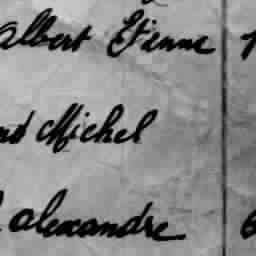 Albert Etienne
Michel
Alexandre